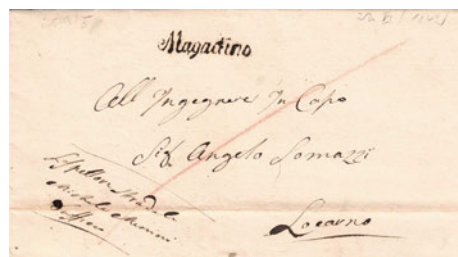 Magadino
All' Ingegnere In Capo
Sig. Angelo Somazzi
Locarno
Ispettore Stradale
Michele